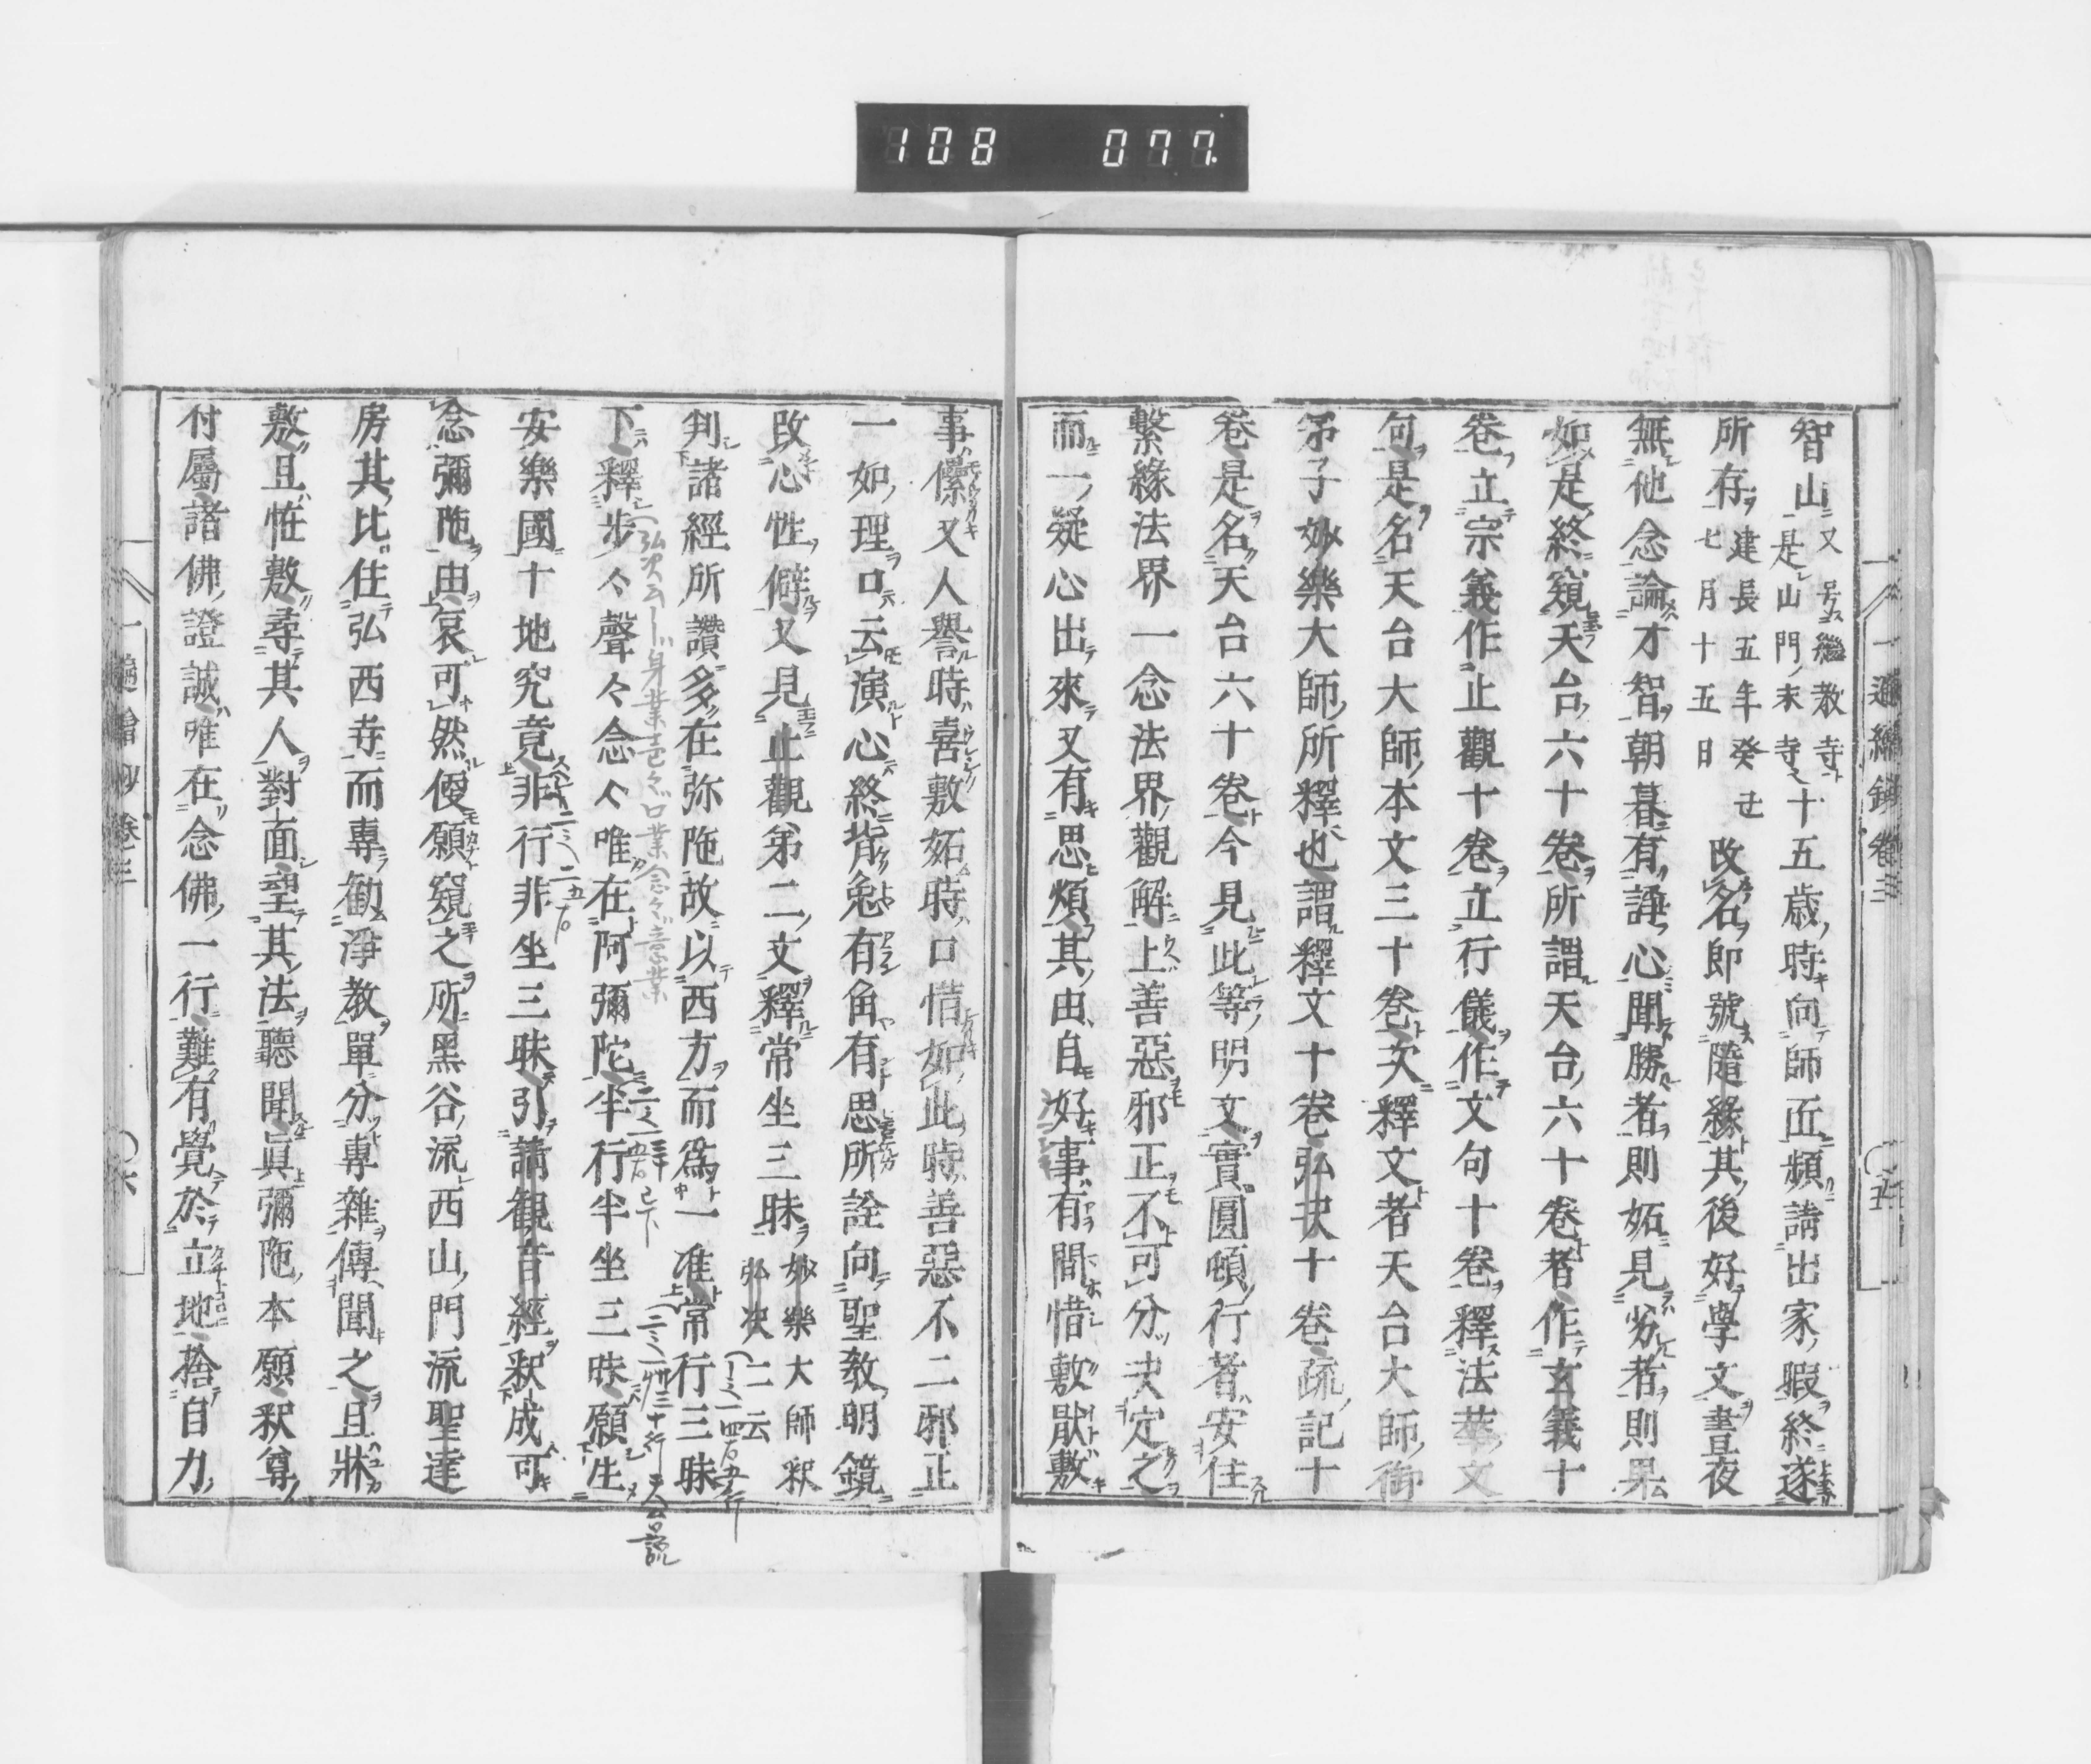 108 077
一遍繪鈔卷三 五
智山又号繼教寺是山門末寺十五歳時向師匠頻請出家暇終遂
所存建長五年癸丑七月十五日改名即號隨緣其後好學文晝夜
無他念論才智朝暮有誦心聞勝者則妬見劣者則果
如是終窺天台六十卷所謂天台六十卷者作玄義十
卷立宗義作止觀十卷立行儀作文句十卷釋法華文
句是名天台大師本文三十卷次釋文者天台大師御
弟子妙樂大師所釋也謂釋文十卷弘决十卷疏記十
卷是名天台六十卷今見此等明文實圓頓行者安住
繫緣法界一念法界觀解上善惡邪正不可分决定之
而一疑心出來又有思煩其由自好事有間惜敷猒敷
事儽又人譽時喜敷妬時口惜如此時善惡不二邪正
一如理口云演心終背兔有角有思所詮向聖教明鏡
改心性僻又見止觀第二文釋常坐三昧妙樂大師釈弘决二云
判諸經所讚多在弥陁故以西方而爲一准常行三昧
下釋步々聲々念々唯在阿彌陀半行半坐三昧願生
安樂國十地究竟非行非坐三昧引請観音經釈成可
念彌陁由哀可然便願窺之所黑谷流西山門流聖達
房其比住弘西寺而專勸淨教單分專雜傳聞之且牀
敷且恠敷尋其人對面望其法聽聞眞彌陁本願釈尊
付屬諸佛證誠唯在念佛一行難有覺於立地捨自力
一遍繪鈔卷三 六